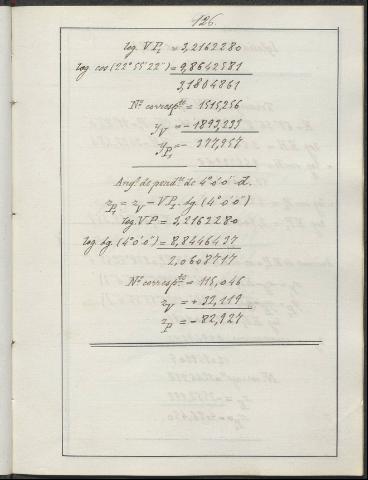 126.
log. V P₁ = 3,2162280
log cos (22° 55' 22") = 9,8642581
3,1804861
Nº corresp.te = 1515,256
y_V = - 1893,233
y_P₁ = - 377,957
Ang. de pend.te de 4° 0' 0" d.
z_P = z_V - V P₁. tg (4° 0' 0")
log. V P = 3,2162280
log. tg. (4° 0' 0") = 8,8446437
2,0608717
Nº corresp.te = 115,046
z_V = + 32,119
z_P = - 82,927